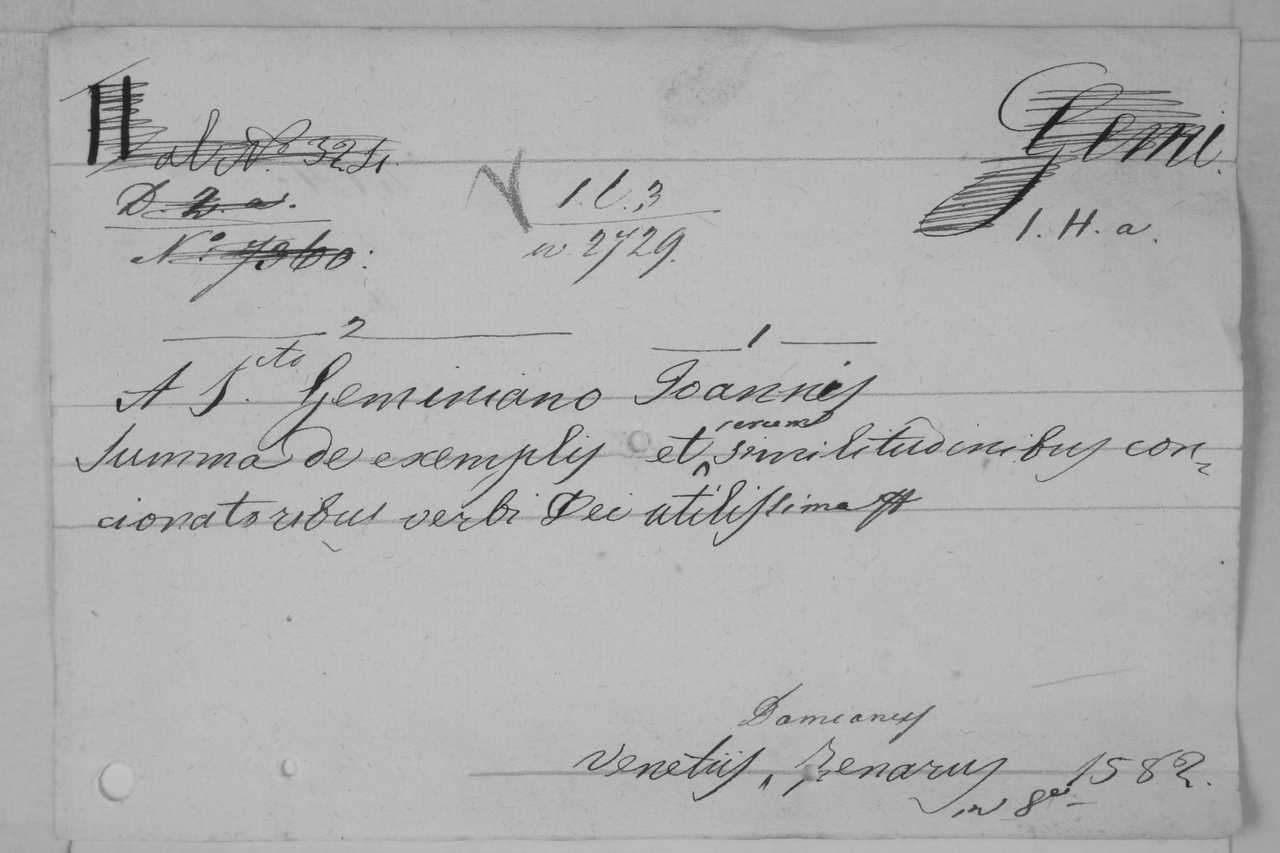 II ab No. 324. Gemi.
D. 2. a. 1. l. 3 1. H. a.
No. 7360: n. 2729.
2 1
A S.cto Geminiano Joannis
Summa de exemplis et rerum similitudinibus con-
cionatoribus verbi Dei utilissima
Damianus
Venetiis, Zenarus 1582.
in 8o